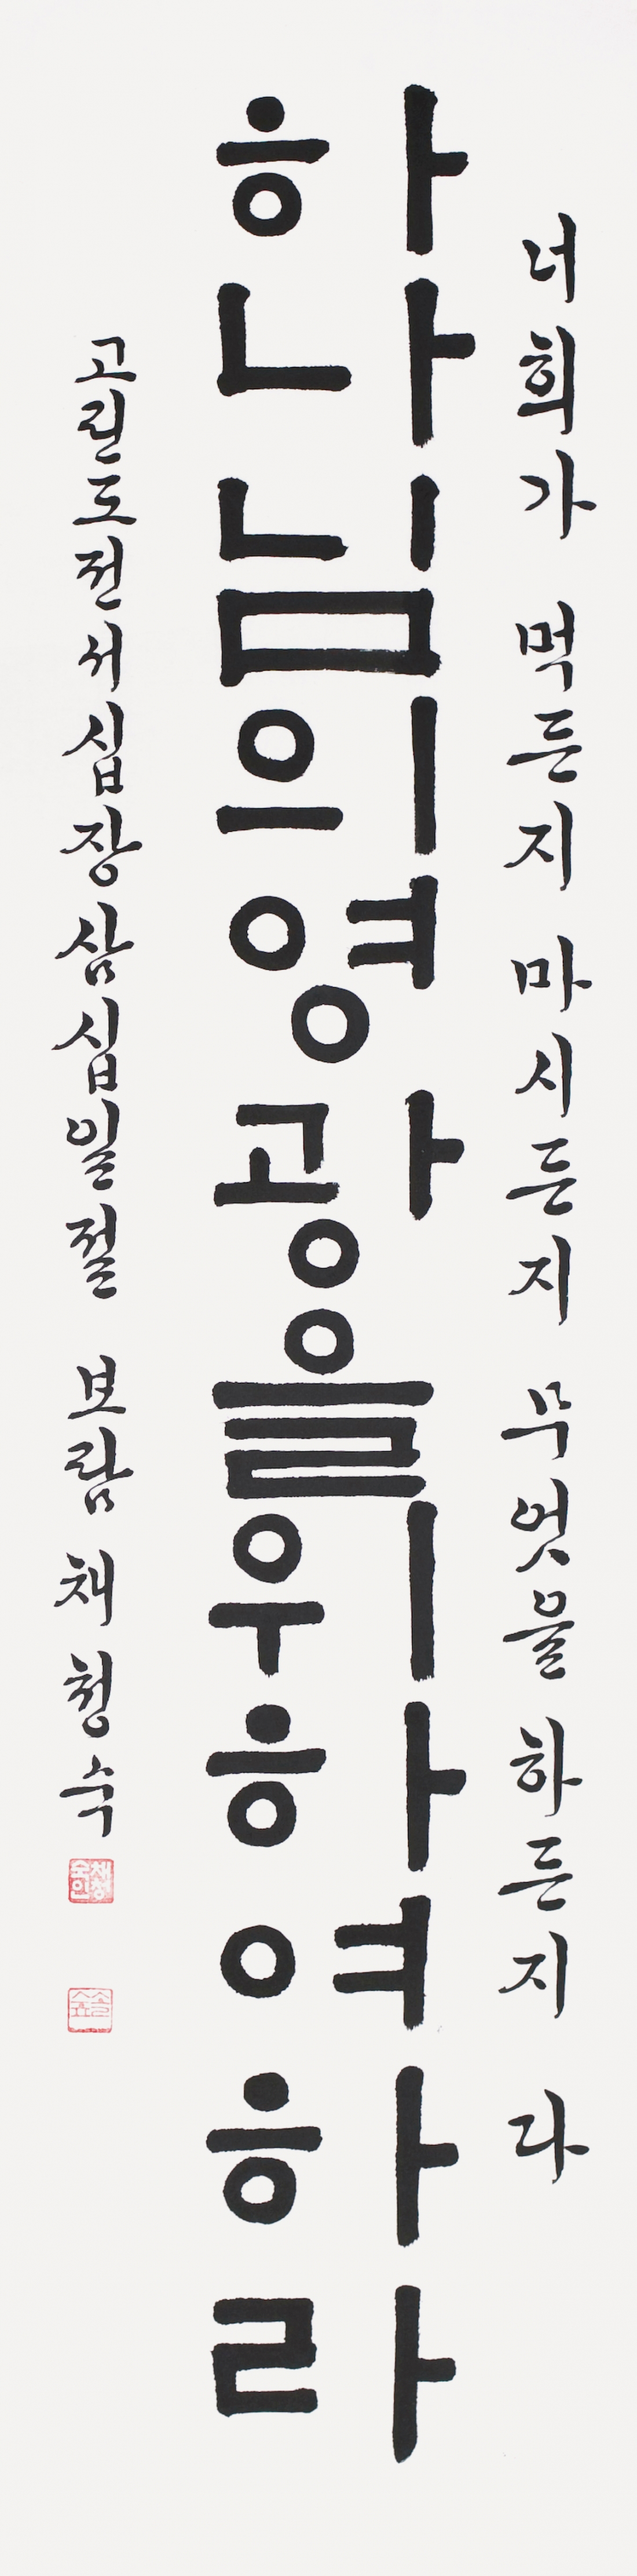 너희가 먹든지 마시든지 무엇을 하든지 다
하나님의영광을위하여하라
고린도전서십장삼십일절 보람 채청숙
채청숙인